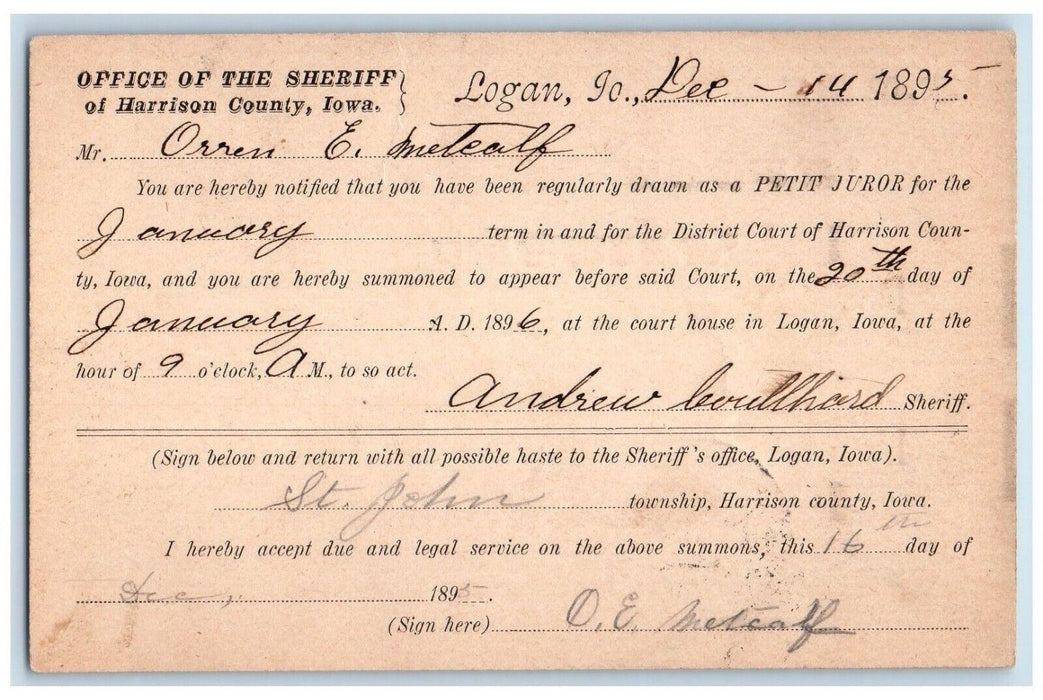 OFFICE OF THE SHERIFF
of Harrison County, Iowa.
Logan, Io., Dec - 14 1895.
Mr. Orren E. Metcalf
You are hereby notified that you have been regularly drawn as a PETIT JUROR for the
January term in and for the District Court of Harrison Coun-
ty, Iowa, and you are hereby summoned to appear before said Court, on the 20th day of
January A. D. 1896, at the court house in Logan, Iowa, at the
hour of 9 o'clock, A M., to so act.
Andrew Coulthard Sheriff.
(Sign below and return with all possible haste to the Sheriff's office, Logan, Iowa).
St. John township, Harrison county, Iowa.
I hereby accept due and legal service on the above summons, this 16th day of
Dec, 1895.
(Sign here) O. E. Metcalf